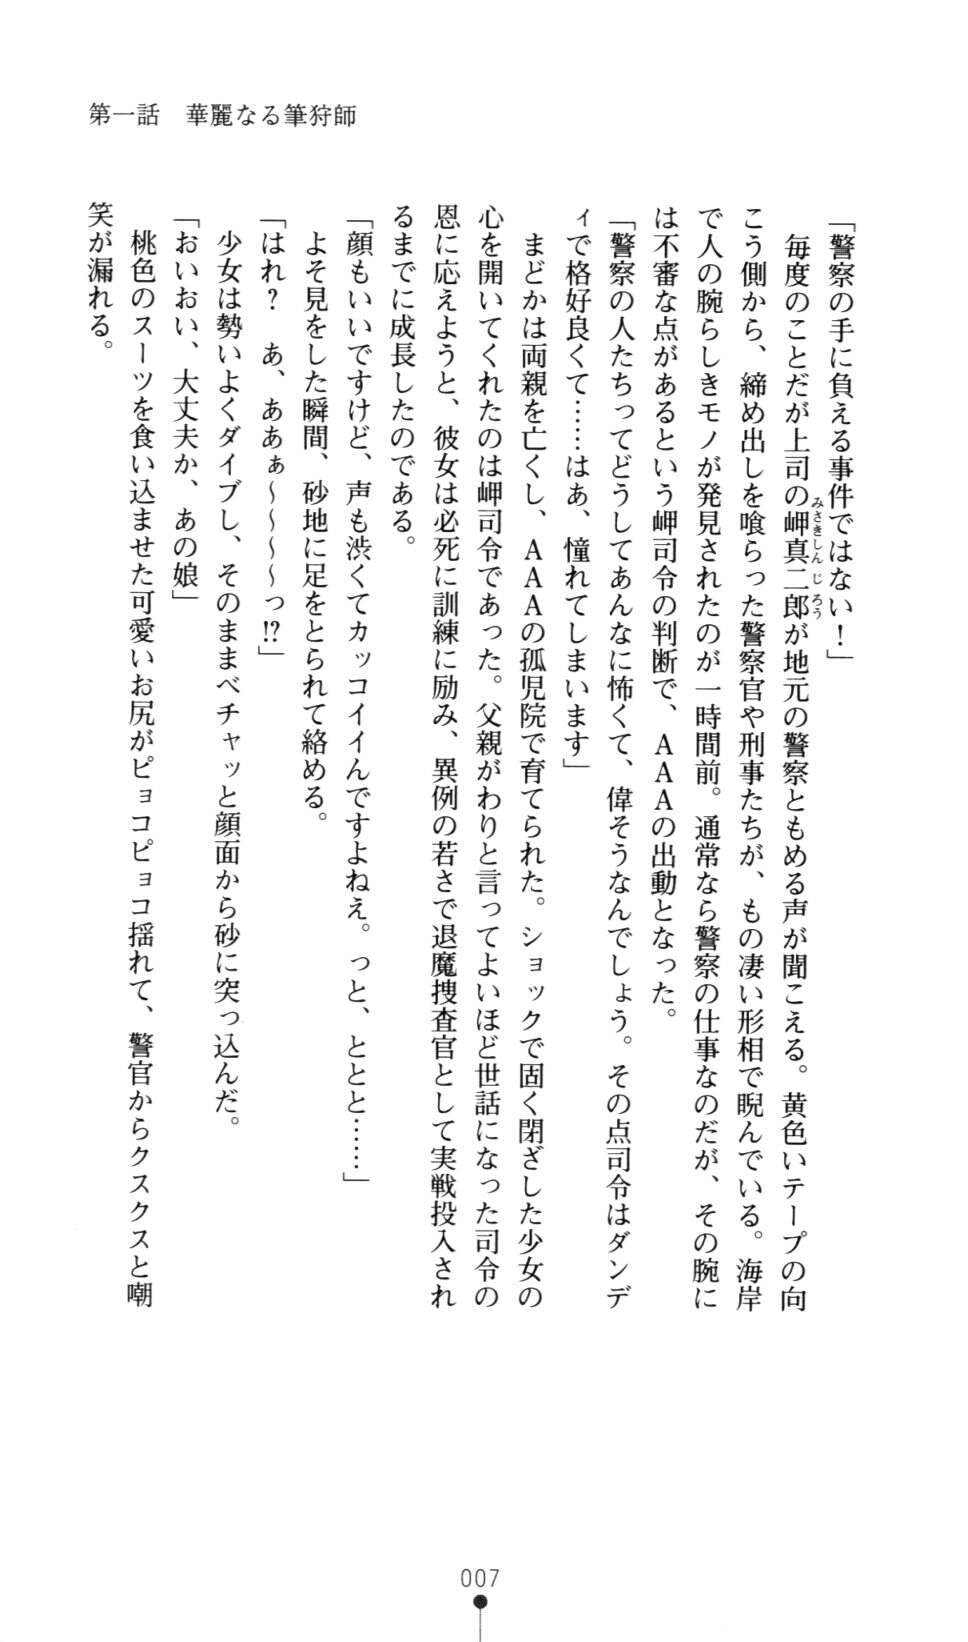 第一話　華麗なる筆狩師
「警察の手に負える事件ではない！」
　毎度のことだが上司の岬真二郎が地元の警察ともめる声が聞こえる。黄色いテープの向
みさきしんじろう
こう側から、締め出しを喰らった警察官や刑事たちが、もの凄い形相で睨んでいる。海岸
で人の腕らしきモノが発見されたのが一時間前。通常なら警察の仕事なのだが、その腕に
は不審な点があるという岬司令の判断で、ＡＡＡの出動となった。
「警察の人たちってどうしてあんなに怖くて、偉そうなんでしょう。その点司令はダンデ
ィで格好良くて……はあ、憧れてしまいます」
　まどかは両親を亡くし、ＡＡＡの孤児院で育てられた。ショックで固く閉ざした少女の
心を開いてくれたのは岬司令であった。父親がわりと言ってよいほど世話になった司令の
恩に応えようと、彼女は必死に訓練に励み、異例の若さで退魔捜査官として実戦投入され
るまでに成長したのである。
「顔もいいですけど、声も渋くてカッコイイんですよねえ。っと、ととと……」
　よそ見をした瞬間、砂地に足をとられて絡める。
「はれ？　あ、ああぁ～～～～っ!?」
　少女は勢いよくダイブし、そのままベチャッと顔面から砂に突っ込んだ。
「おいおい、大丈夫か、あの娘」
　桃色のスーツを食い込ませた可愛いお尻がピョコピョコ揺れて、警官からクスクスと嘲
笑が漏れる。
007